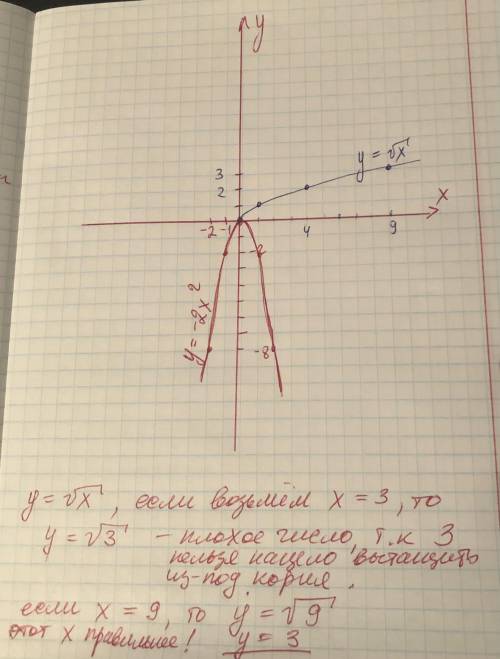 y
y = √x
3
2
x
-2 -1 4 9
-2
y = -2x²
-8
y = √x , если возьмём x = 3 , то
y = √3 – плохое число, т.к 3
нельзя нацело вытащить
из-под корня .
если x = 9 , то y = √9
этот x правильнее! y = 3